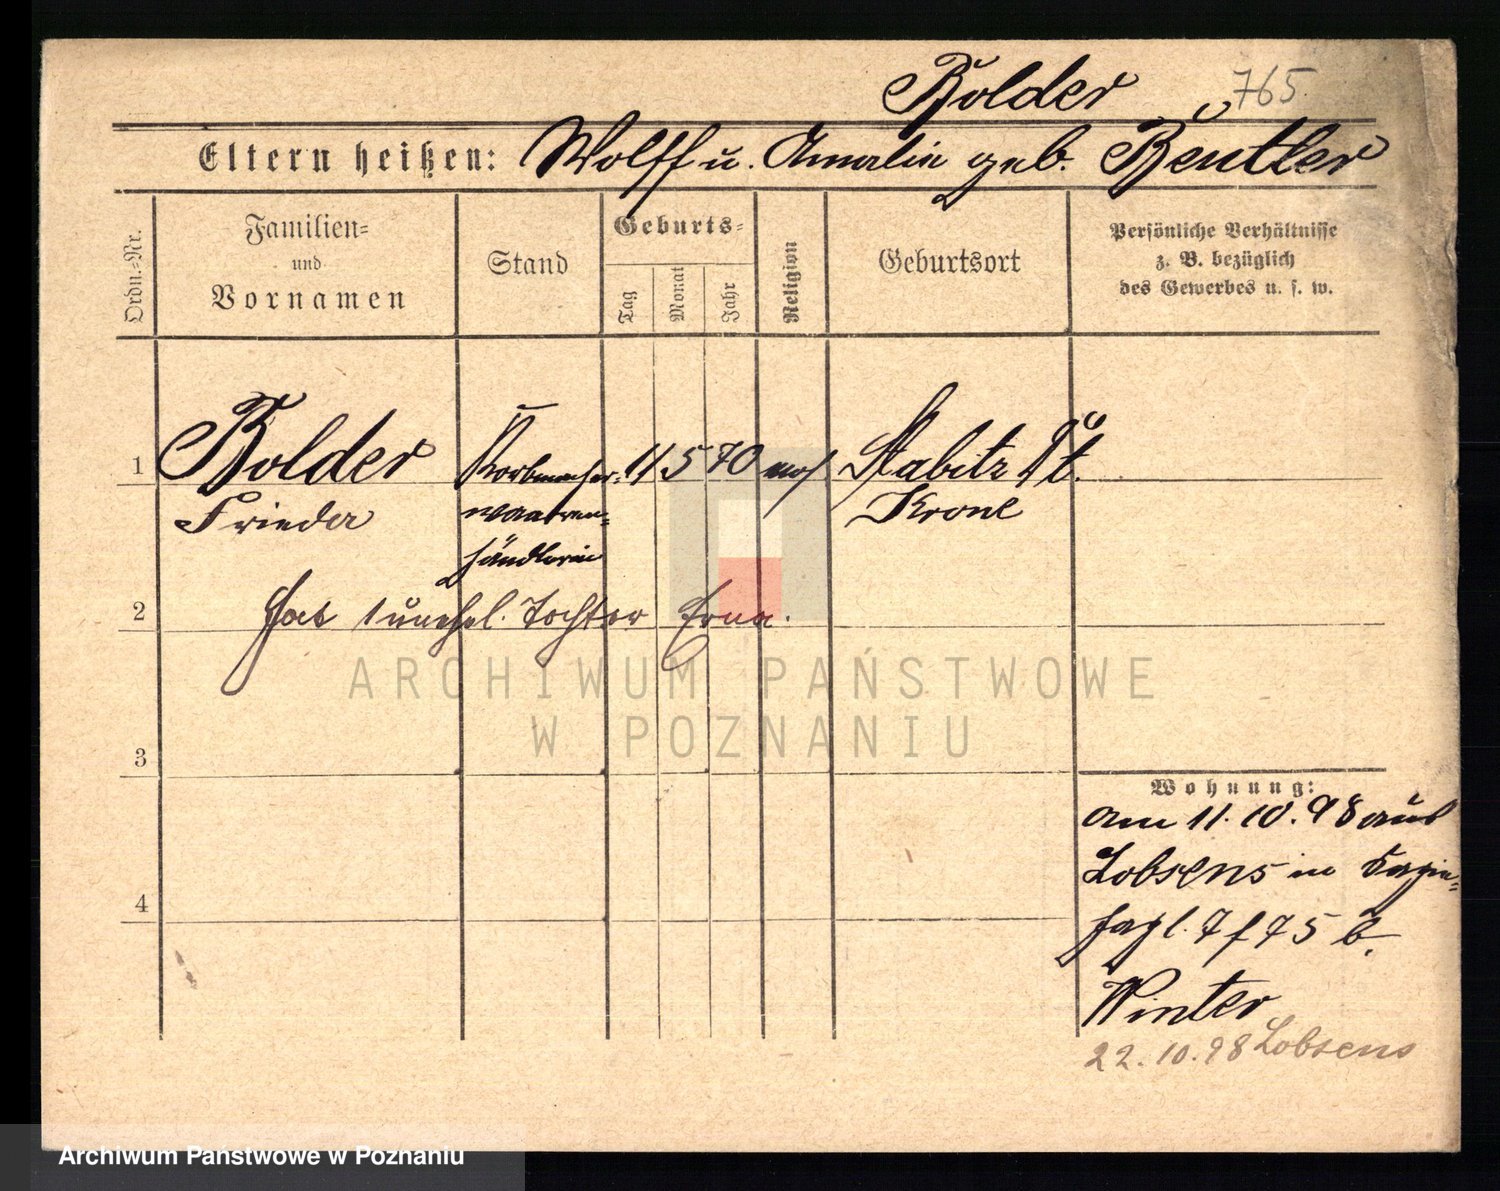 Bolder 765.
Eltern heißen: Wolff u. Amalie geb. Beutler
Ordn.-Nr.
Familien-
und
Vornamen
Stand
Geburts-
Tag
Monat
Jahr
Religion
Geburtsort
Persönliche Verhältnisse
z. B. bezüglich
des Gewerbes u. s. w.
1 Bolder Korbmacher- 11 5 70 mos Stabitz Dt.
Frieda waaren- Krone
händlerin
2 hat 1 unehel. Tochter Erna.
ARCHIWUM PAŃSTWOWE
W POZNANIU
3
Wohnung:
am 11.10.98 aus
Lobsens in
4
75 b.
Winter
22.10.98 Lobsens
Archiwum Państwowe w Poznaniu